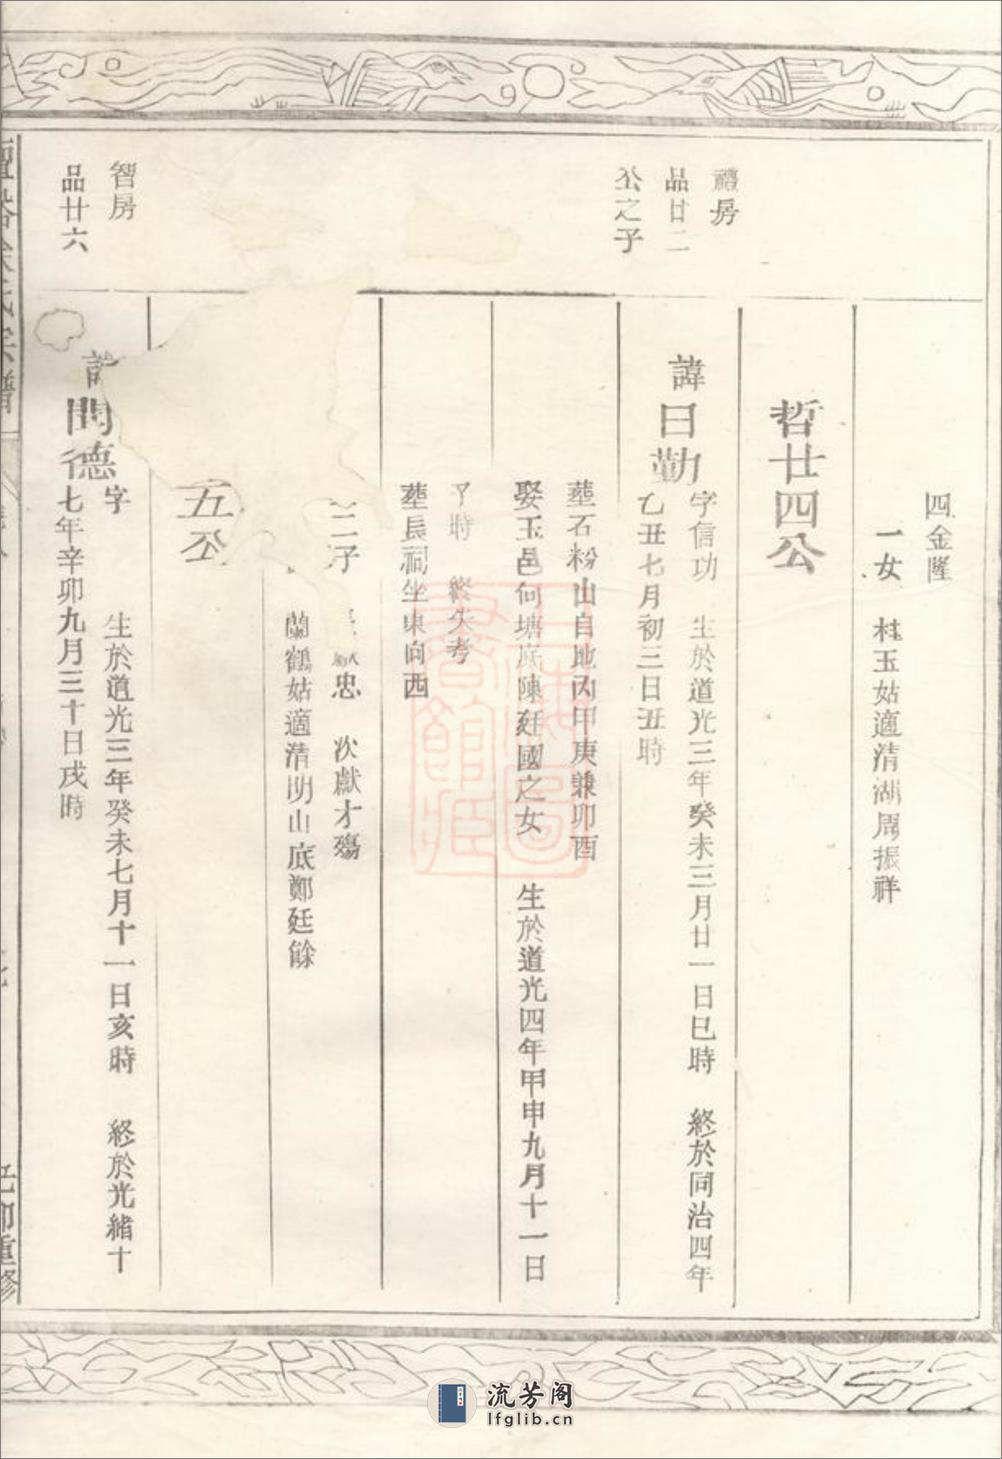 四金隆
一女　桂玉姑適清湖周振祥
哲廿四公
禮房
品廿二
公之子
諱日勤
字信功　生於道光三年癸未三月廿一日巳時　終於同治四年
乙丑七月初三日丑時
葬石粉山自地丙甲庚兼卯酉
娶玉邑何塘底陳廷國之女　生於道光四年甲申九月十一日
子時　終失考
葬長祠坐東向西
二子　獻忠　次獻才殤
蘭鶴姑適清明山底鄭廷餘
五公
智房
品廿六
諱問德
字　生於道光三年癸未七月十一日亥時　終於光緒十
七年辛卯九月三十日戌時
徐氏宗譜
重修
流芳阁
lfglib.cn